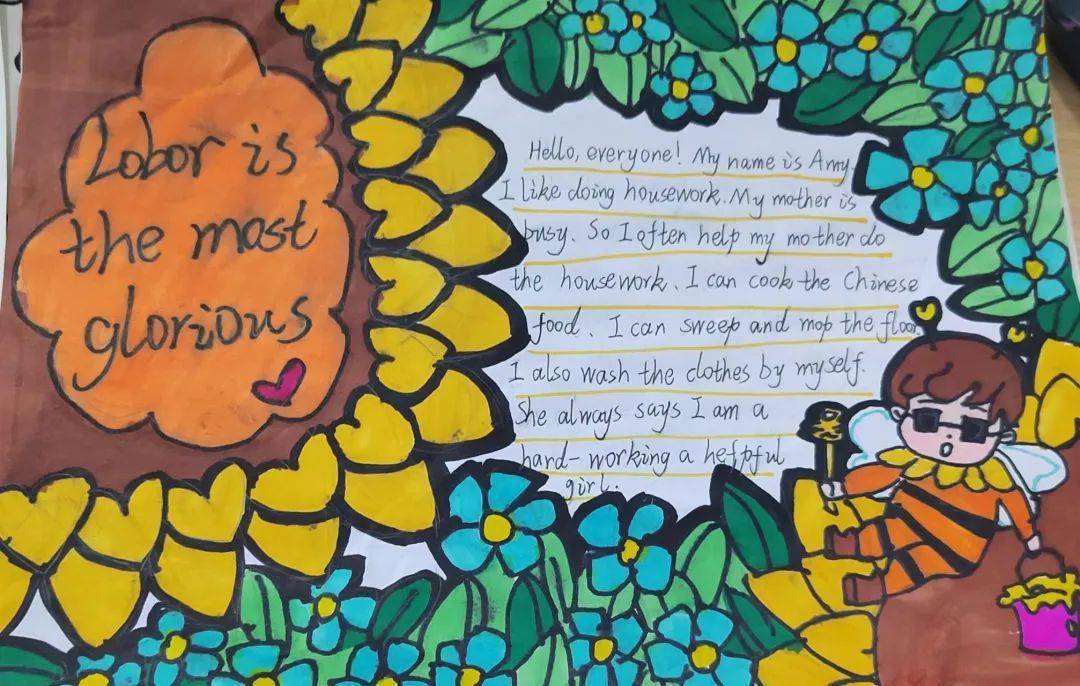 Lobor is
the most
glorious
Hello, everyone! My name is Amy.
I like doing housework. My mother is
busy. So I often help my mother do
the housework. I can cook the Chinese
food. I can sweep and mop the floor
I also wash the clothes by myself.
She always says I am a
hard-working a helpful
girl.